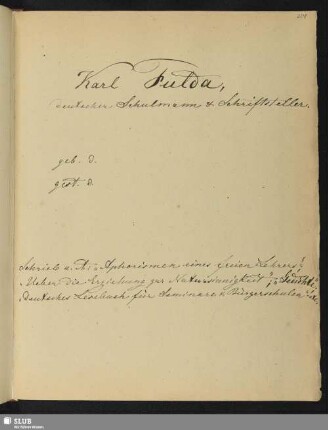 Karl Fulda,
deutscher Schulmann & Schriftsteller.
geb. d.
gest. d.
Schrieb u. A.: „Aphorismen eines freien Lehrers“
„Ueber die Erziehung zur Natursinnigkeit“;
„Deutsches Lesebuch für Seminare u. Bürgerschulen“
SLUB
Wir führen Wissen.